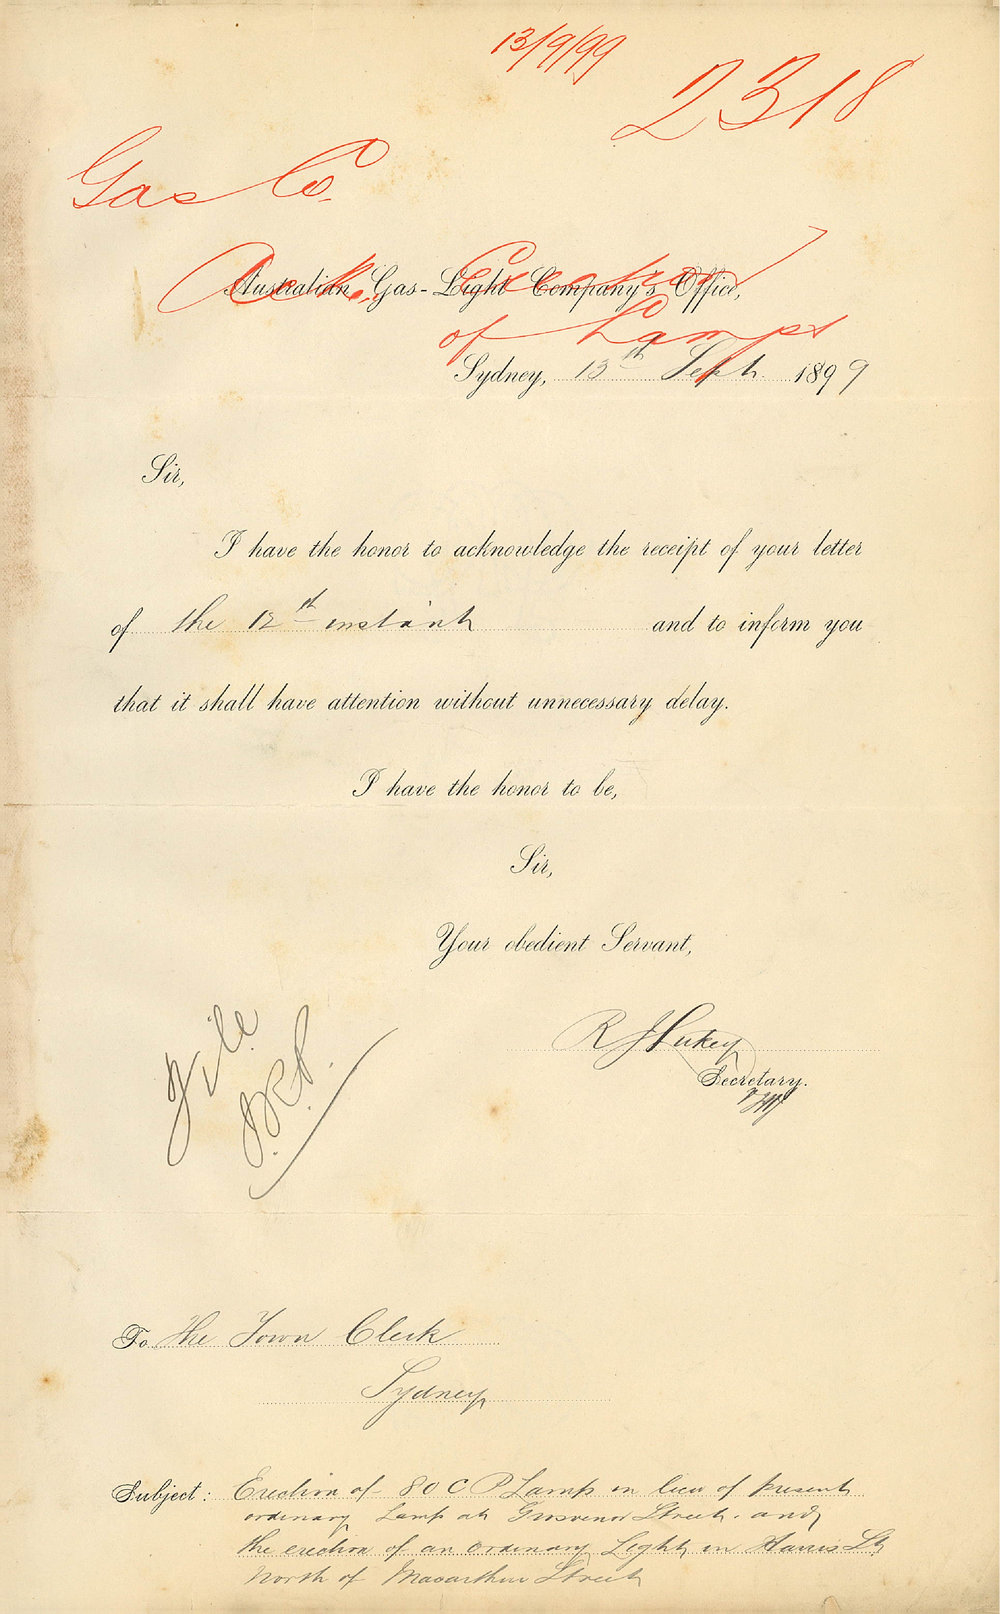 13/9/99
2318
Gas Co.
Ack. Erection
of Lamps
Australian Gas-Light Company's Office,
Sydney, 13th Sept. 1899
Sir,
I have the honor to acknowledge the receipt of your letter
of the 12th instant and to inform you
that it shall have attention without unnecessary delay.
I have the honor to be,
Sir,
Your obedient Servant,
R J Lukey
Secretary.
File
To The Town Clerk
Sydney
Subject: Erection of 80 C P Lamp in lieu of present
ordinary Lamp at Grosvenor Street. and
the erection of an ordinary Light in Harris St
North of Macarthur Street